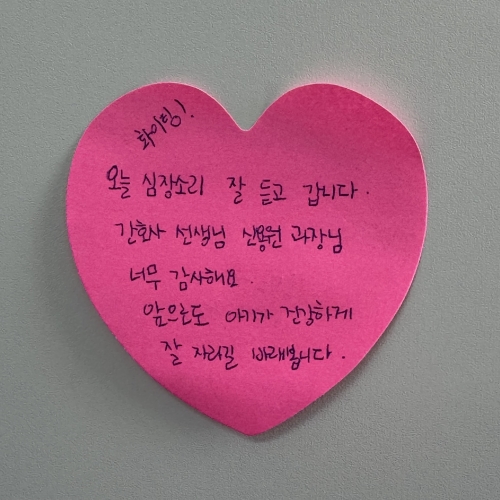 화이팅!
오늘 심장소리 잘 듣고 갑니다.
간호사 선생님 신용원 과장님
너무 감사해요.
앞으로도 아기가 건강하게
잘 자라길 바래봅니다.